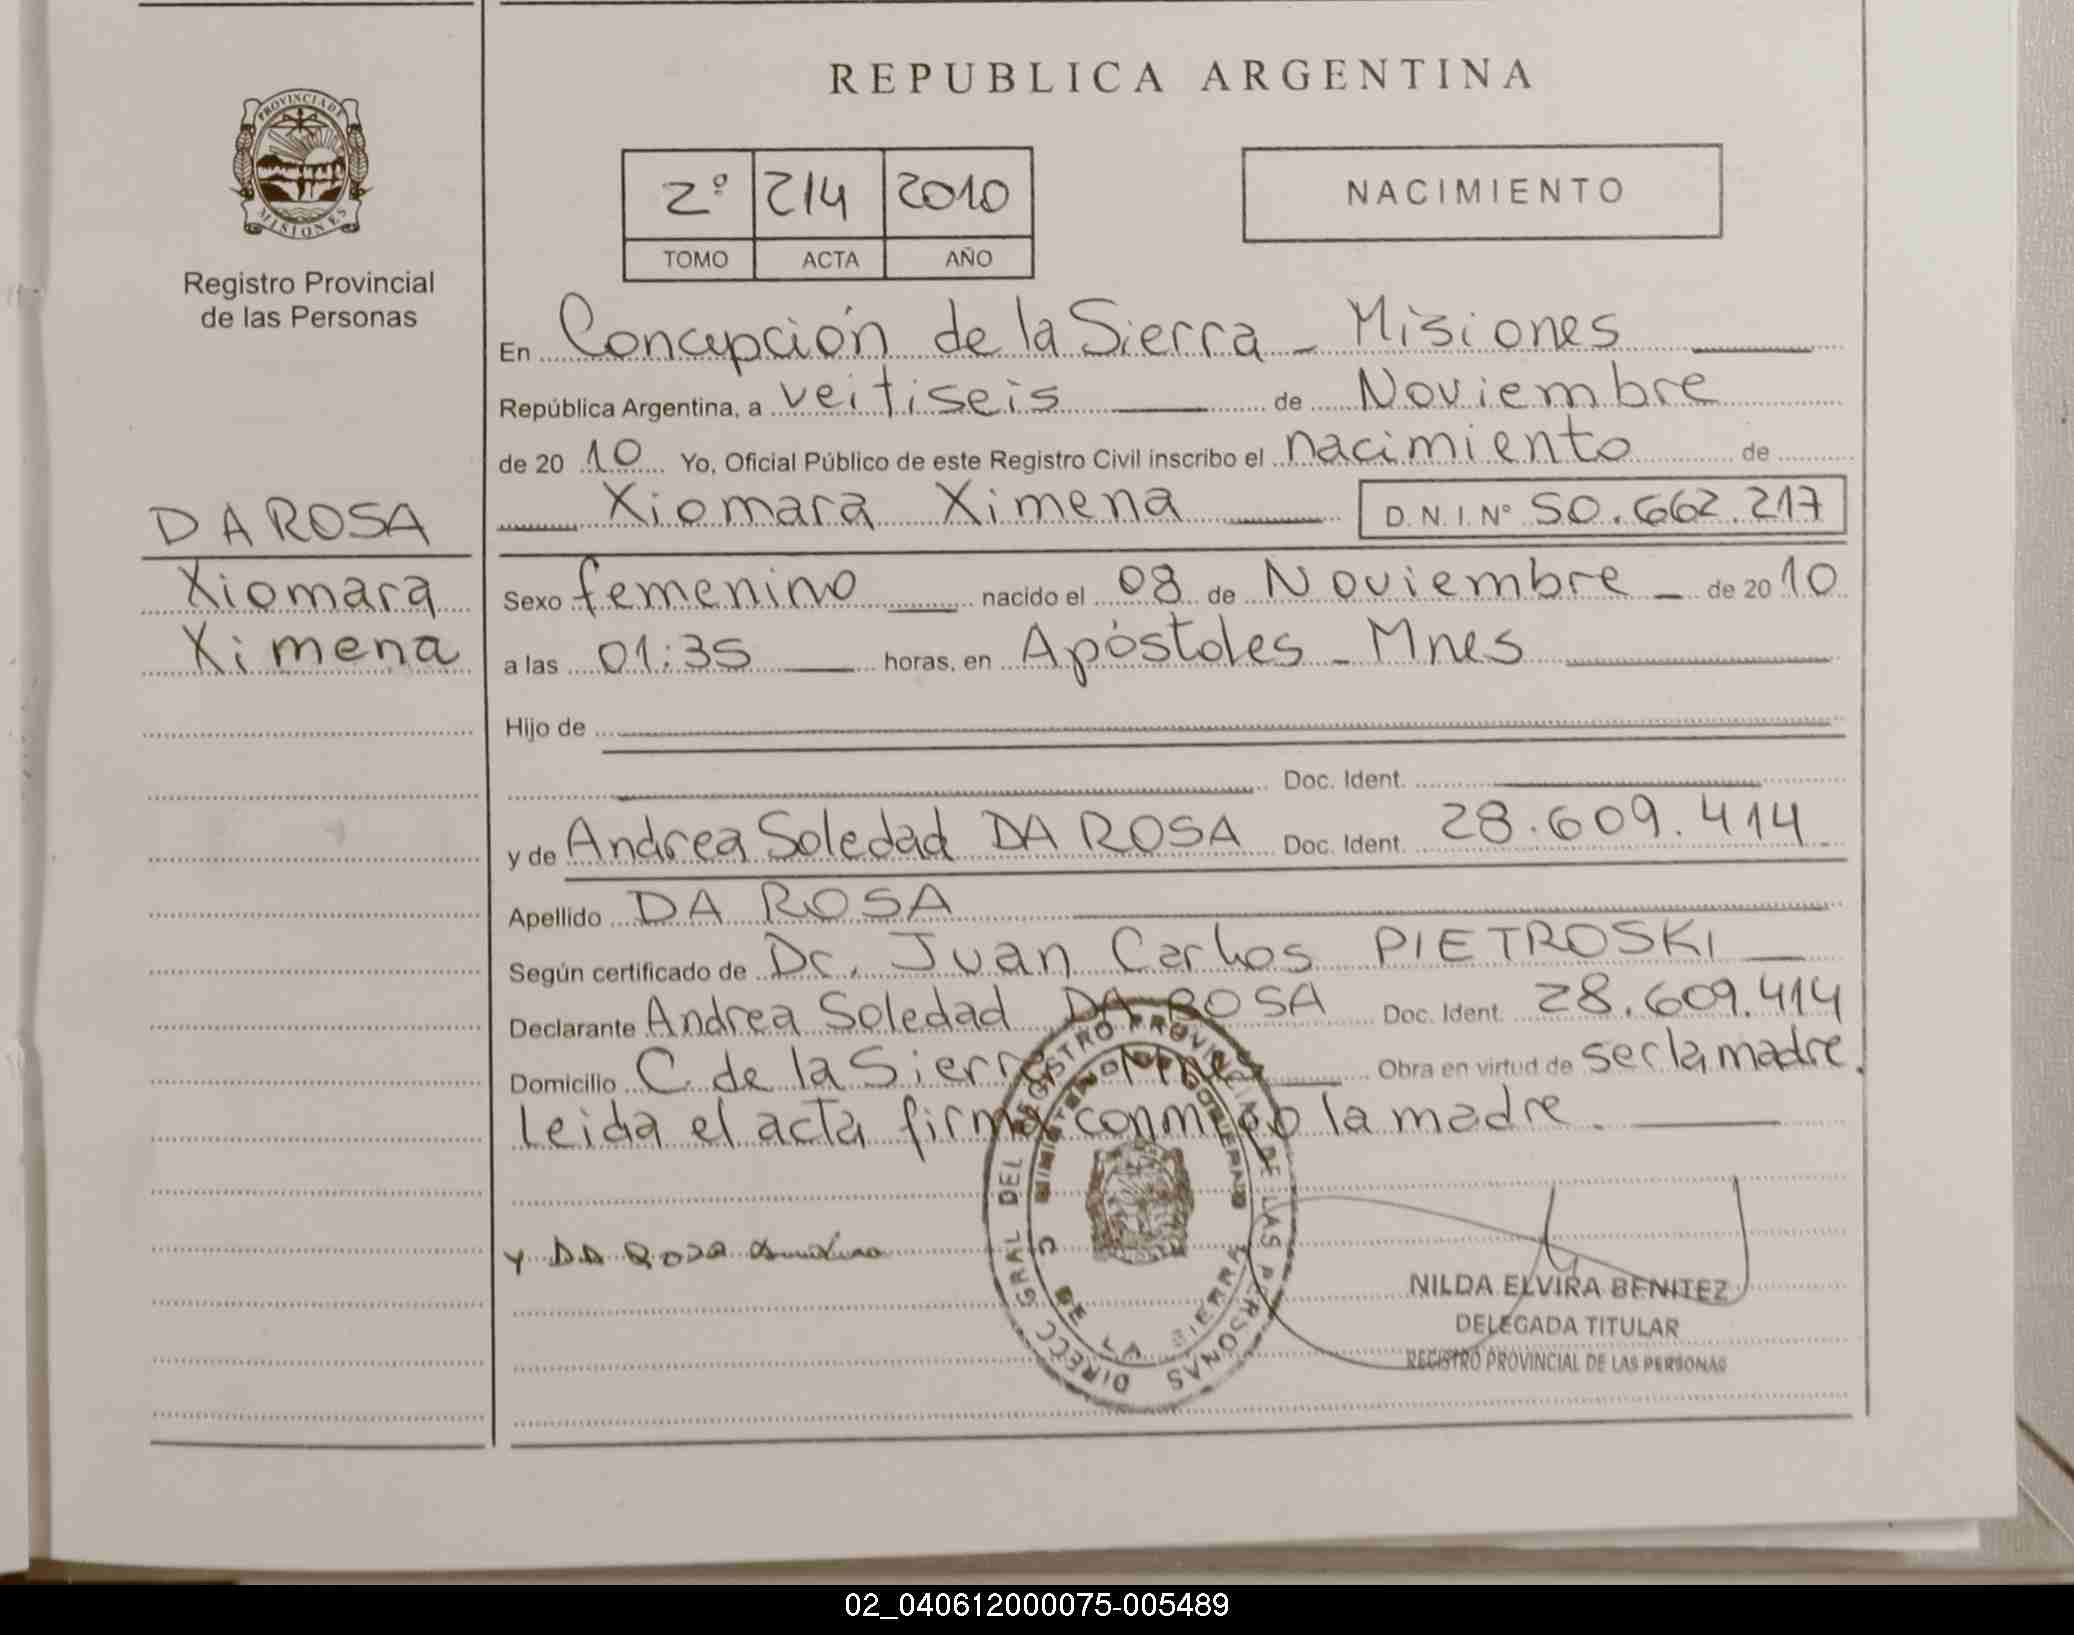 REPUBLICA ARGENTINA
PROVINCIA DE
MISIONES
Registro Provincial
de las Personas
2º 214 2010
TOMO ACTA AÑO
NACIMIENTO
En Concepción de la Sierra - Misiones
República Argentina, a veitiseis de Noviembre
de 2010 Yo, Oficial Público de este Registro Civil inscribo el nacimiento de
Xiomara Ximena D.N.I.Nº 50.662.217
DA ROSA
Xiomara
Ximena
Sexo femenino nacido el 08 de Noviembre - de 2010
a las 01:35 horas, en Apóstoles - Mnes
Hijo de
Doc. Ident.
y de Andrea Soledad DA ROSA Doc. Ident. 28.609.414
Apellido DA ROSA
Según certificado de Dr. Juan Carlos PIETROSKI
Declarante Andrea Soledad DA ROSA Doc. Ident. 28.609.414
Domicilio C. de la Sierra Mnes Obra en virtud de ser la madre.
Leida el acta firma conmigo la madre.
DIRECC GRAL DEL REGISTRO PROVINCIAL DE LAS PERSONAS
MINISTERIO DE GOBIERNO
C DE LA SIERRA
Y DA ROSA
NILDA ELVIRA BENITEZ
DELEGADA TITULAR
REGISTRO PROVINCIAL DE LAS PERSONAS
02_040612000075-005489